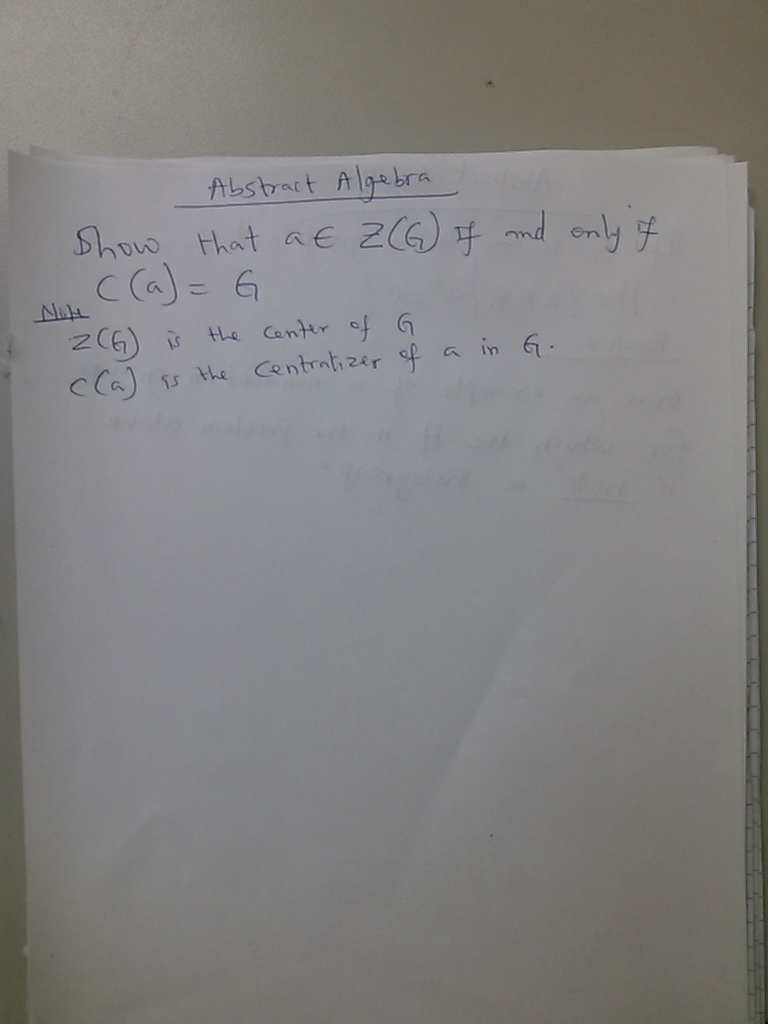 Abstract Algebra
Show that a ∈ Z(G) If and only if
C(a) = G
Note
Z(G) is the center of G
C(a) is the centralizer of a in G.